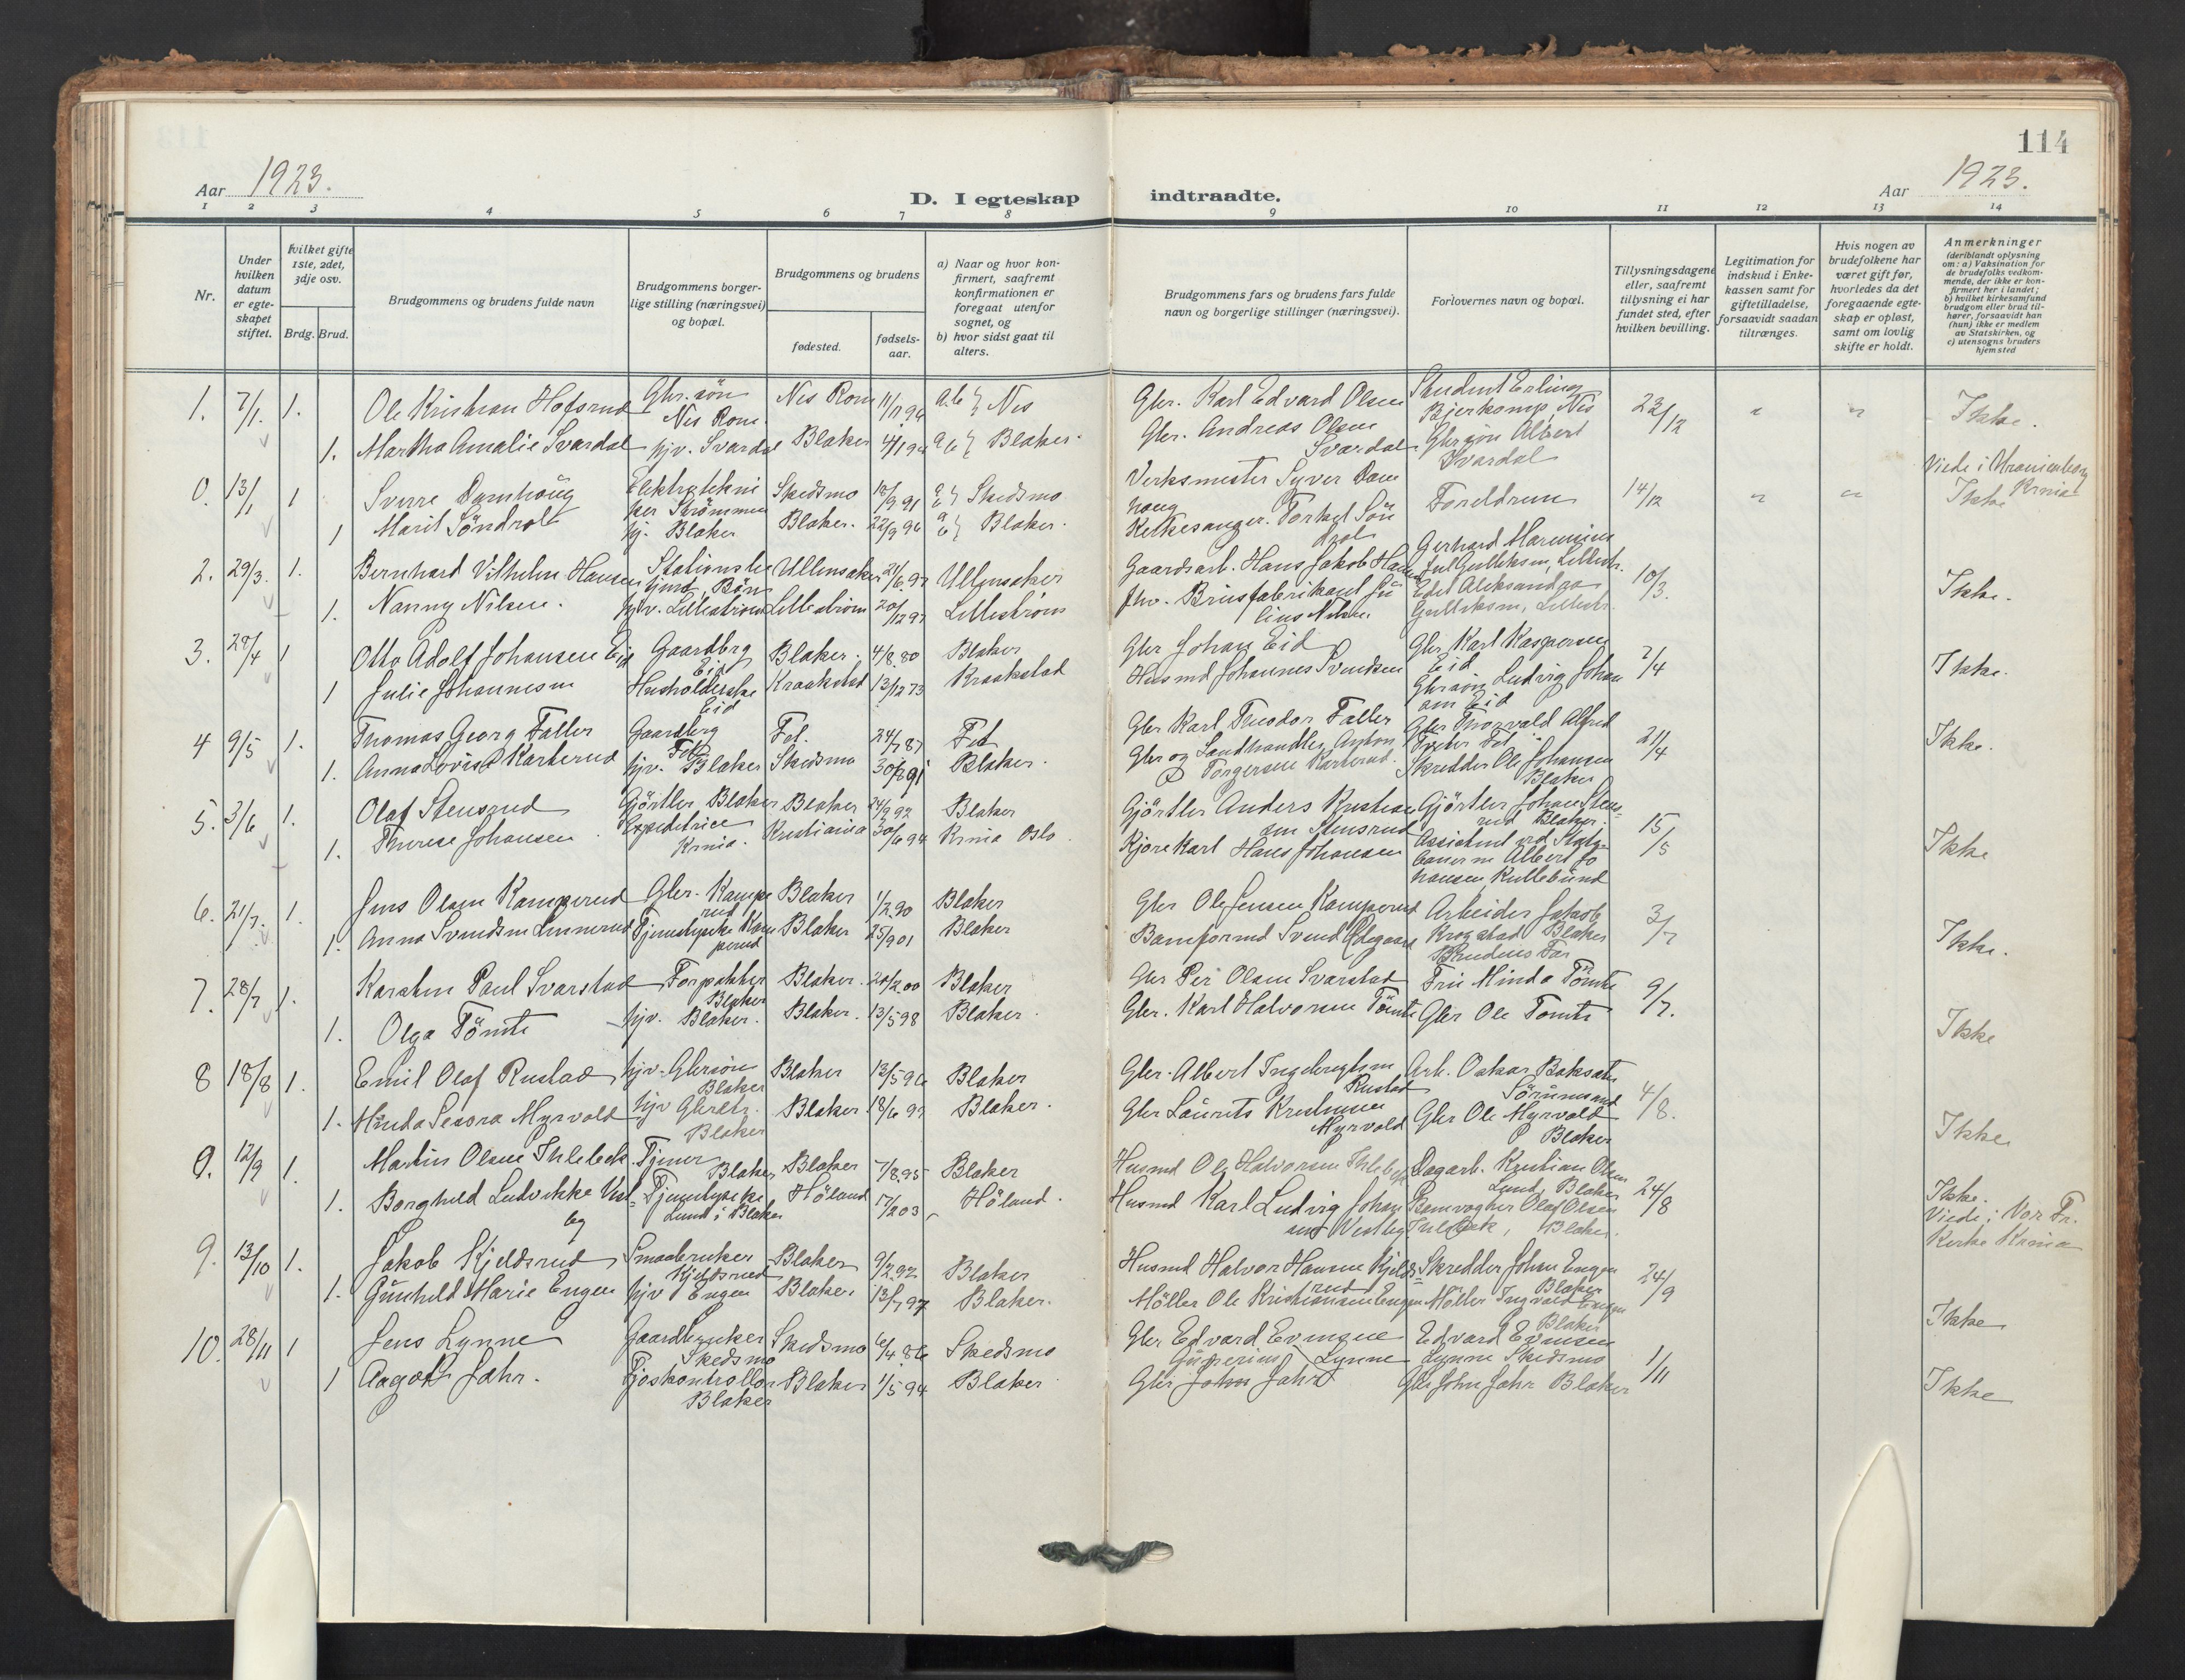 114
Aar 1923.
D. I egteskap indtraadte.
Aar 1923.
1 2 3 4 5 6 7 8 9 10 11 12 13 14
Nr.
Under hvilken datum er egteskapet stiftet.
Hvilket gifte 1ste, 2det, 3dje osv.
Brdg. Brud.
Brudgommens og brudens fulde navn
Brudgommens borgerlige stilling (næringsvei) og bopæl.
Brudgommens og brudens
fødested.
fødselsaar.
a) Naar og hvor konfirmert, saafremt konfirmationen er foregaat utenfor sognet, og
b) hvor sidst gaat til alters.
Brudgommens fars og brudens fars fulde navn og borgerlige stillinger (næringsvei).
Forlovernes navn og bopæl.
Tillysningsdagene eller, saafremt tillysning ei har fundet sted, efter hvilken bevilling.
Legitimation for indskud i Enkekassen samt for giftetilladelse, forsaavidt saadan tiltrænges.
Hvis nogen av brudefolkene har været gift før, hvorledes da det foregaaende egteskap er opløst, samt om lovlig skifte er holdt.
Anmerkninger (deriblandt oplysning om: a) Vaksination for de brudefolks vedkommende, der ikke er konfirmert her i landet; b) hvilket kirkesamfund brudgom eller brud tilhører, forsaavidt han (hun) ikke er medlem av Statskirken, og c) utensogns bruders hjemsted
1. 7/1. 1. Ole Kristian Hofsrud Gbr. søn Nes Rom. Nes Rom 11/11 96 a.b} Nes Gbr. Karl Edvard Olsen Student Erling Bjerkamp, Nes 22/12 " " Ikke.
1. Martha Amalie Svardal hjv. Svardal Blaker 4/1 94 a b} Blaker. Gbr. Andreas Olsen Svardal Gbrsøn Albert Svardal
0. 13/1 1 Sverre Damhaug Elektrotekniker Strømmen Skedsmo 10/9 91 a b} Skedsmo Verksmester Syver Damhaug Foreldrene 14/12 " " Viede i Uranienborg Krnia Ikke
1 Marit Söndrol hj. Blaker Blaker. 22/9 96 a b} Blaker. Kirkesanger. Torkel Söndrol
2. 29/3. 1. Bernhard Vilhelm Hansen Stationsbetjent, Bön Ullensaker 24/6. 97 Ullensaker Gaardsarb. Hans Jakob Hansen Gerhard Marenius Jul Gulliksen, Lillestr. 10/3. Ikke.
1. Nanny Nilsen. hjv. Lillestrøm Lillestrøm 20/12 97 Lillestrøm fhv. Brusfabrikant Julius Nilsen Edel Aleksandra Gulliksen, Lillestr.
3. 28/4 1 Otto Adolf Johansen Eid Gaardbrg Eid Blaker. 4/8. 80 Blaker Gbr Johan Eid Gbr Karl Kaspersen Eid 7/4 Ikke.
1 Julie Johannesen Husholderske Eid Kraakstad 13/12 73 Kraakstad Husmd Johannes Svendsen Gbrsøn Ludvig Johansen Eid
4 9/5 1. Thomas Georg Faller Gaardbrg Fet Fet. 24/7 87 Fet Gbr Karl Theodor Faller Gbr Thorvald Alfred Fet 21/4 Ikke.
1. Anna Lovise Karterud hjv. Blaker Skedsmo 30/8 91 Blaker. Gbr og Landhandler Anton Torgersen Karterud. Skredder Ole Johansen Blaker
5. 3/6 1. Olaf Stensrud Gjörtler Blaker Blaker 24/9 92 Blaker Gjörtler Anders Kristiansen Stensrud Gjörtler Johan Stensrud Blaker. 15/5 Ikke
1. Therese Johansen Expeditrice Krnia. Kristiania 30/6 94 Krnia Oslo Kjørekarl Hans Johansen Assistent ved Statsbanerne Albert Johansen, Kullebund
6. 21/7. 1. Jens Olsen Kamperud Gbr. Kamperud Blaker 1/2. 90 Blaker Gbr Ole Jensen Kamperud Arbeider Jakob Krogstad Blaker 3/7 Ikke.
1. Anna Svendsen Linnerud Tjenestepike Kamperud Blaker 25/9 01 Blaker Baneformd Svend Ødegaard Brudens Far
7. 28/7 1. Karsten Paul Svarstad Forpakter Blaker Blaker. 20/2. 00 Blaker Gbr Per Olsen Svarstad Fru Minda Tömte 9/7. Ikke
1. Olga Tömte hjv. Blaker. Blaker. 13/5 98 Blaker. Gbr. Karl Halvorsen Tömte Gbr Ole Tomte
8 18/8 1. Emil Olaf Rustad hjv. Gbrsøn Blaker Blaker 13/5 96 Blaker Gbr. Albert Ingebrigtsen Rustad Arb. Oskar Baksæter Sörumsand 4/8. Ikke
1. Minda Senora Myrvold hjv Gbrdtr. Blaker Blaker 18/6 97 Blaker. Gbr Laurits Kristiansen Myrvold Gbr Ole Myrvold Blaker
0. 12/9 1. Martin Olsen Ihlebek Tjener Blaker Blaker 7/8. 95 Blaker Husmd Ole Halvorsen Ihlebek Dagarb. Kristian Olsen Lund, Blaker 24/8 Ikke. Viede i Vor Fr. Kirke Krnia
1. Borghild Ludvikke Vestby Tjenestepike Lund i Blaker Höland 17/2 03 Höland. Husmd Karl Ludvig Johansen Vestby Banevogter Olaf Olsen Ihlebek, Blaker.
9. 13/10 1. Jakob Kjeldsrud Smaabruker Kjeldsrud Blaker 9/2. 92 Blaker Husmd Halvor Hansen Kjeldsrud Skredder Johan Engen Blaker 24/9 Ikke
1. Gunhild Marie Engen hjv Engen Blaker 13/7 97 Blaker. Möller Ole Kristiansen Engen Möller Ingvald Engen Blaker
10. 28/11 1 Jens Lynne Gaardbruker Skedsmo Skedsmo 6/4. 86 Skedsmo Gbr Edvard Evensen Lynne Edvard Evensen Lynne Skedsmo 1/11 Ikke
1 Aagot Jahr. Fjøskontrollør Blaker Blaker 1/5 94 Blaker Gbr John Jahr Gbr John Jahr Blaker